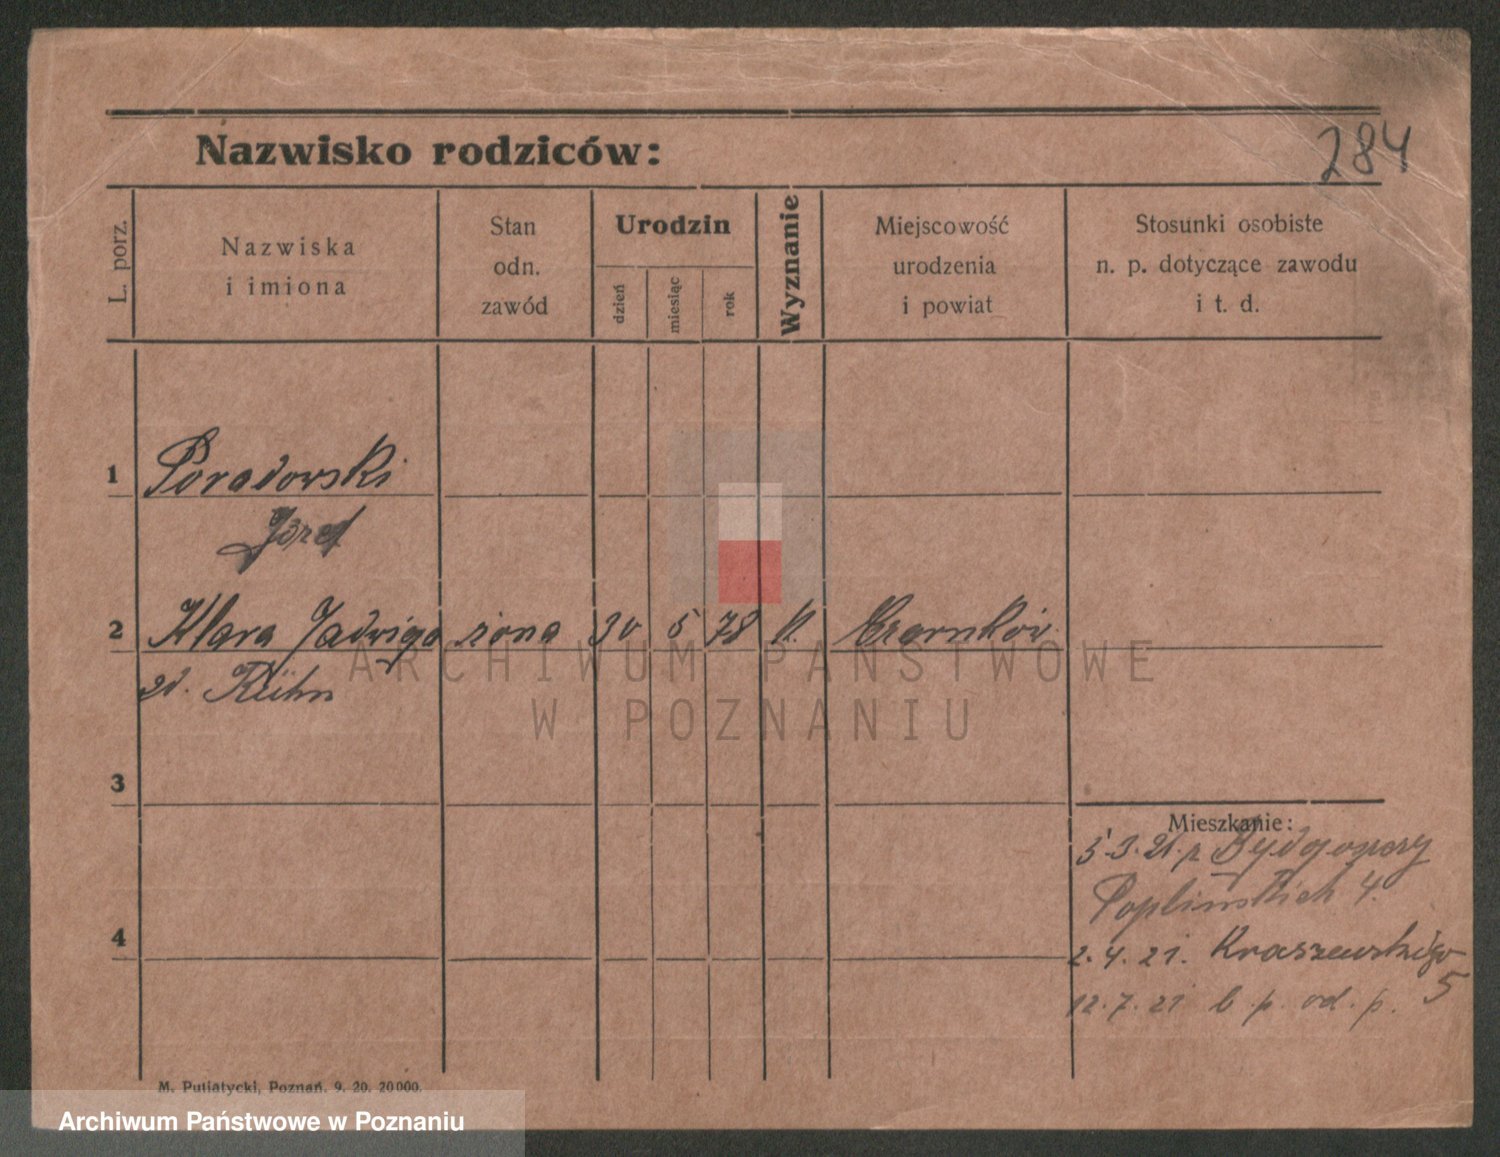 Nazwisko rodziców:
284
L. porz.
Nazwiska
i imiona
Stan
odn.
zawód
Urodzin
dzień
miesiąc
rok
Wyznanie
Miejscowość
urodzenia
i powiat
Stosunki osobiste
n. p. dotyczące zawodu
i t. d.
1 Poradowski
Józef
2 Klara Jadwiga żona 30 5 78 k. Czarnków
zd. Kühn
ARCHIWUM PAŃSTWOWE
W POZNANIU
3
Mieszkanie:
5.3.21. z Bydgoszczy
Poplińskich 4.
4
2.4.21. Kraszewskiego
5
12.7.21 b. p. od. p.
M. Putiatycki, Poznań. 9. 20. 20000.
Archiwum Państwowe w Poznaniu